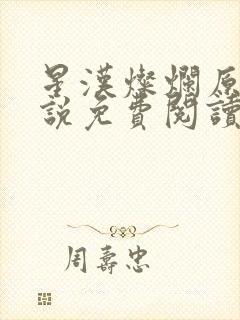 星漢燦爛原
說免費閱讀
周壽忠